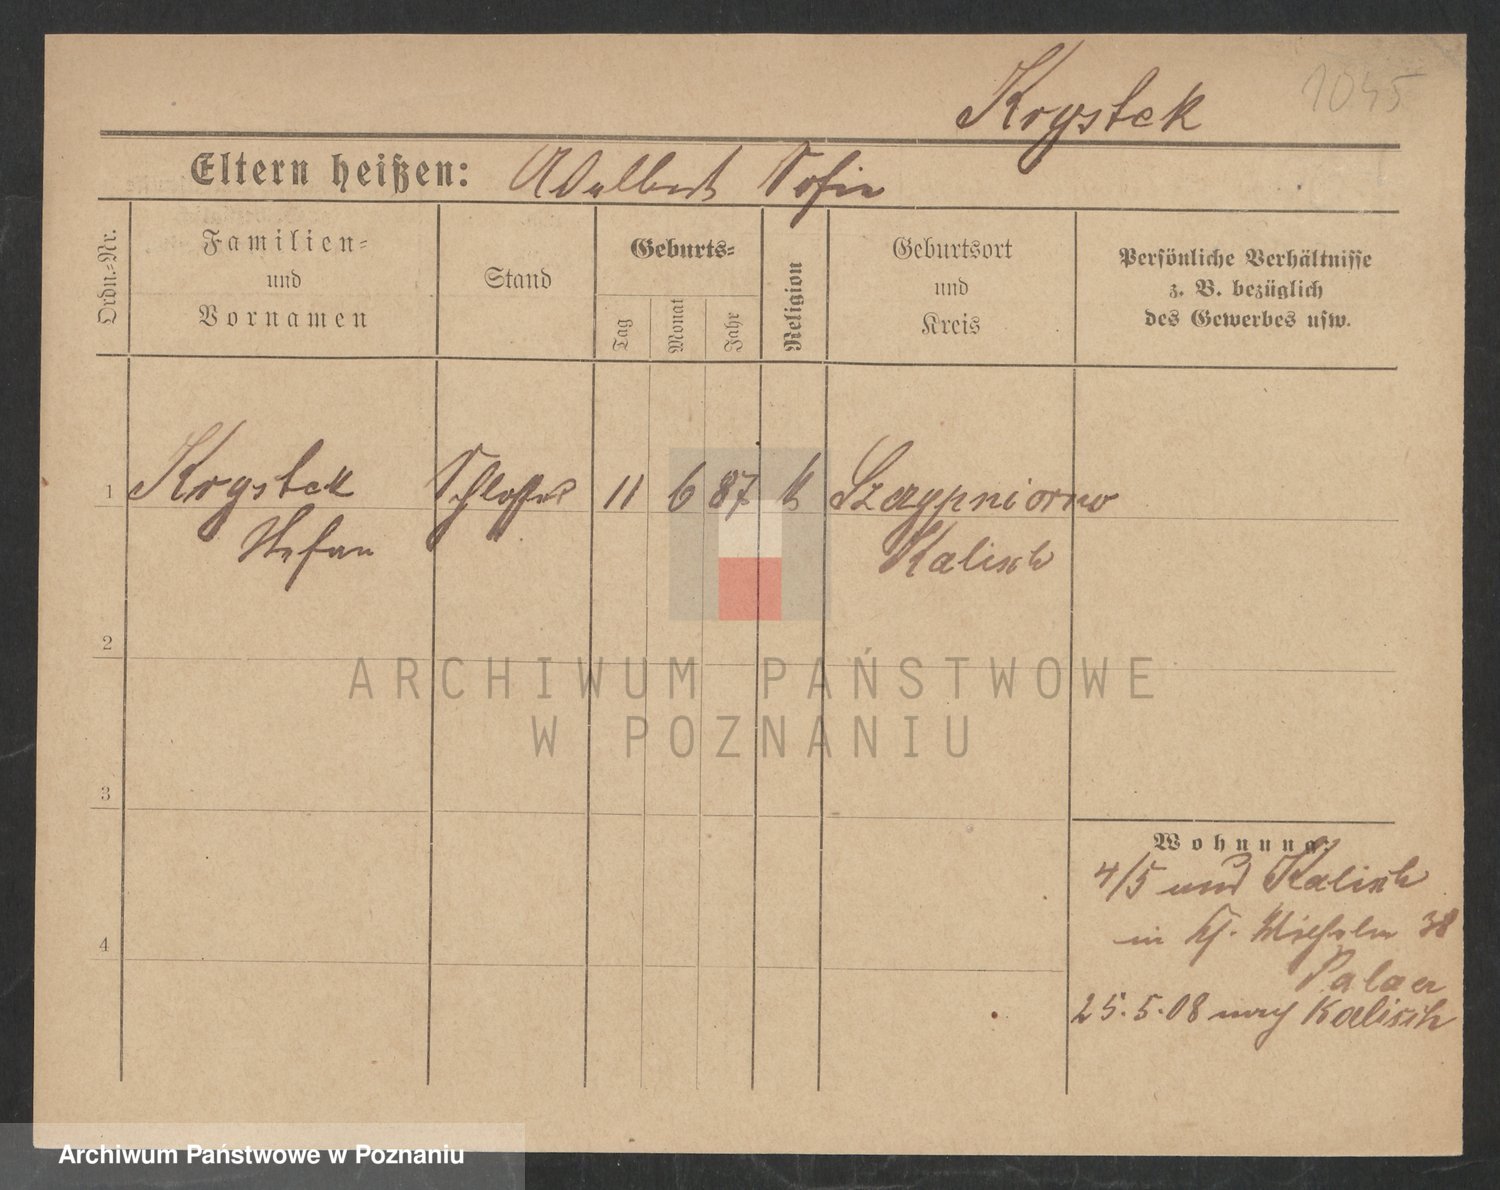 Krystek
1045
Eltern heißen: Adalbert Sofie
Ordn.-Nr.
Familien-
und
Vornamen
Stand
Geburts-
Tag
Monat
Jahr
Religion
Geburtsort
und
Kreis
Persönliche Verhältnisse
z. B. bezüglich
des Gewerbes usw.
1 Krystek Schlosser 11 6 87 k Szczypniorno
Stefan Kalisch
2
3
4
ARCHIWUM PAŃSTWOWE
W POZNANIU
Wohnung.
4/5 und Kalisch
in Wilhelm 38
25.5.08 nach Kalisch
Archiwum Państwowe w Poznaniu